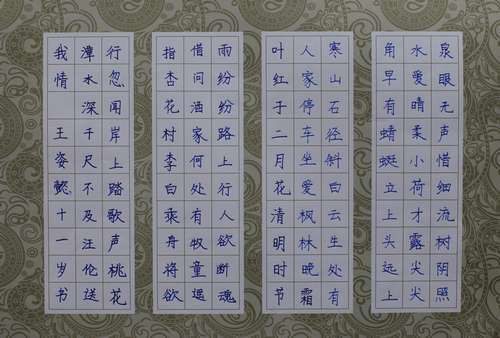 泉眼无声惜细流树阴照
水爱晴柔小荷才露尖尖
角早有蜻蜓立上头远上
寒山石径斜白云生处有
人家停车坐爱枫林晚霜
叶红于二月花清明时节
雨纷纷路上行人欲断魂
借问酒家何处有牧童遥
指杏花村李白乘舟将欲
行忽闻岸上踏歌声桃花
潭水深千尺不及汪伦送
我情 王姿懿十一岁书